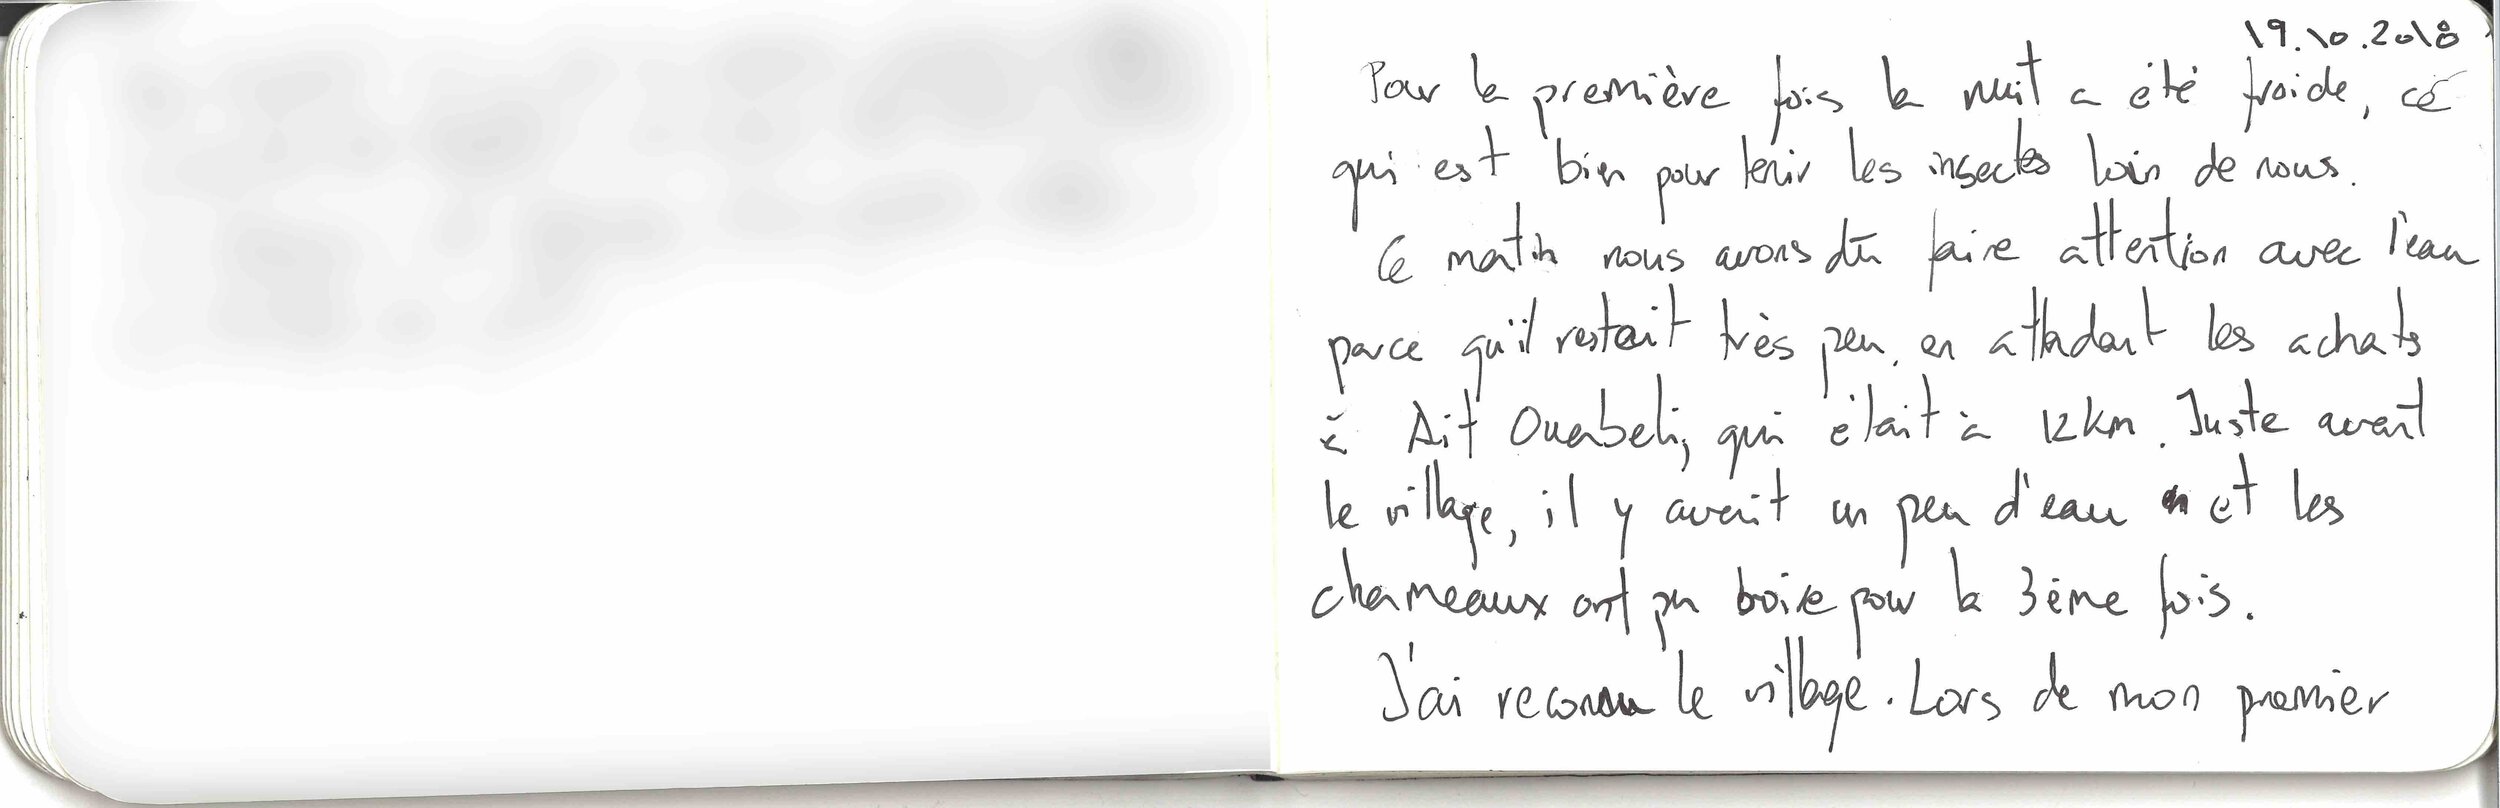 19.10.2018
Pour la première fois la nuit a été froide, ce
qui est bien pour tenir les insectes loin de nous.
Ce matin nous avons dû faire attention avec l'eau
parce qu'il restait très peu, en attendant les achats
à Ait Ouabeli, qui était à 12 km. Juste avant
le village, il y avait un peu d'eau et les
chameaux ont pu boire pour la 3ème fois.
J'ai reconnu le village. Lors de mon premier